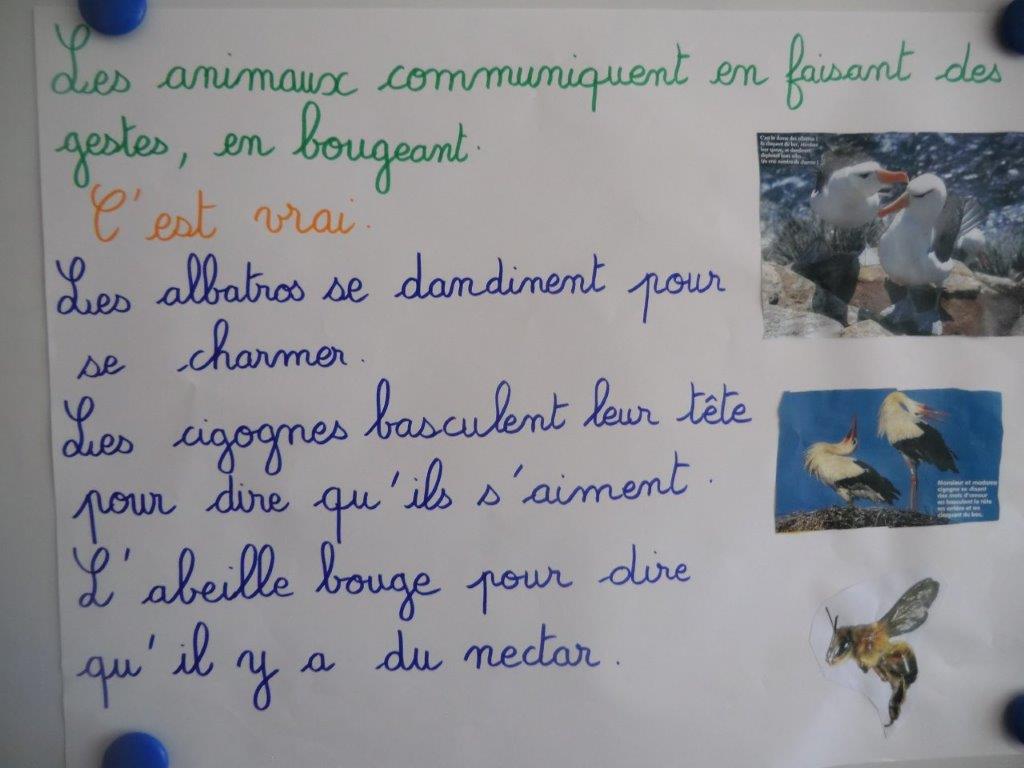 Les animaux communiquent en faisant des
gestes, en bougeant.
C'est vrai.
Les albatros se dandinent pour
se charmer.
Les cigognes basculent leur tête
pour dire qu'ils s'aiment.
L'abeille bouge pour dire
qu'il y a du nectar.
Monsieur et madame
cigogne se disent
des mots d'amour
en basculant la tête
en arrière et en
claquant du bec.